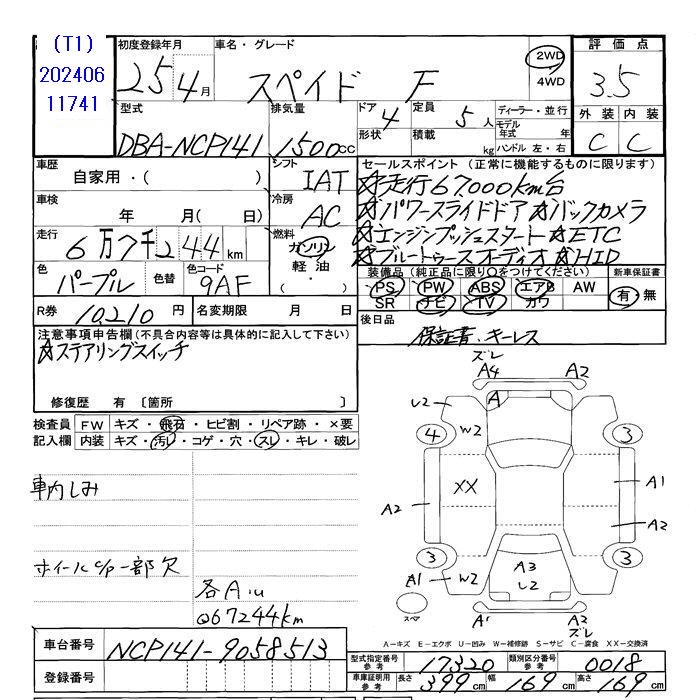 (T1)
202406
11741
初度登録年月
25年4月
車名・グレード
スペイド F
2WD
4WD
評価点
3.5
外装 内装
C C
型式
DBA-NCP141
排気量
1500cc
ドア 4
形状
定員 5人
積載 kg
ディーラー・並行
モデル年式 年
ハンドル 左・右
車歴
自家用・( )
シフト
IAT
車検
年 月( 日)
冷房
AC
走行
6万7千244km
燃料
ガソリン
軽油・
( )
色
パープル
色替
色コード
9AF
R券 10,210円
名変期限 月 日
セールスポイント(正常に機能するものに限ります)
☆走行67,000km台
☆パワースライドドア ☆バックカメラ
☆エンジンプッシュスタート ☆ETC
☆ブルートゥースオーディオ ☆HID
装備品(純正品に限り○をつけてください)
PS PW ABS エアB AW
SR ナビ TV カワ
新車保証書
有・無
後日品
保証書、キーレス
注意事項申告欄(不具合内容等は具体的に記入して下さい)
☆ステアリングスイッチ
修復歴 有 〔箇所 〕
検査員記入欄
FW キズ・飛石・ヒビ割・リペア跡・×要
内装 キズ・汚レ・コゲ・穴・スレ・キレ・破レ
車内しみ
ホイールc/p一部欠
各A.u
@67244km
ズレ
A4 A2
A
U2 W2
4 3
XX
A2 A1
A2
3 3
A1 W2
A3
U2
U2
スペア
A1 A2
ズレ
A-キズ E-エクボ U-凹み W-補修跡 S-サビ C-腐食 XX-交換済
車台番号 NCP141-9058513
登録番号
型式指定番号 参考 17320
類別区分番号 参考 0018
車庫証明用 参考 長さ 399cm 幅 169cm 高さ 169cm